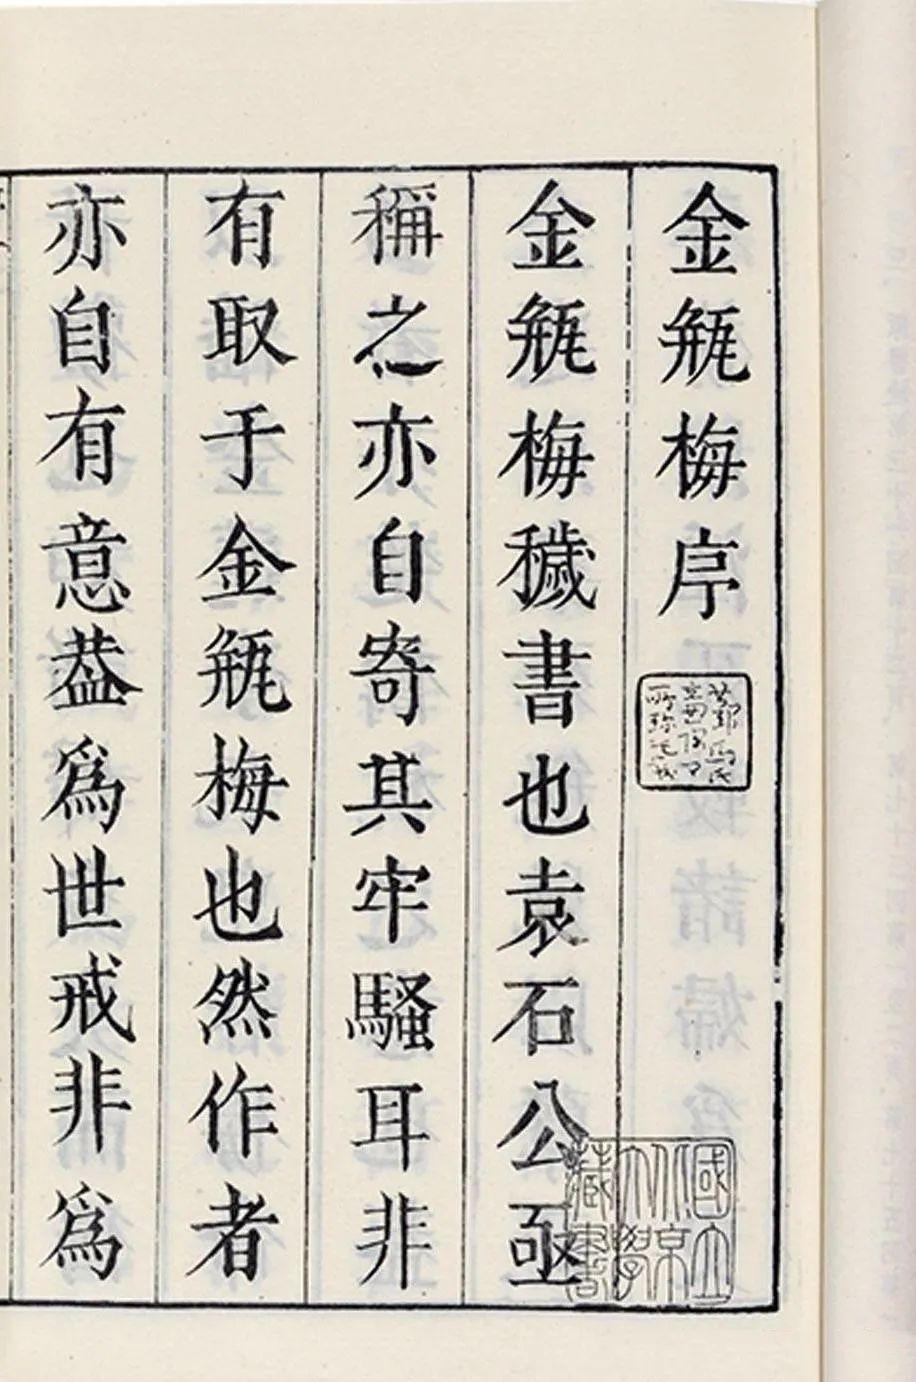 金瓶梅序
金瓶梅穢書也袁石公亟
稱之亦自寄其牢騷耳非
有取于金瓶梅也然作者
亦自有意葢爲世戒非爲
國立
北京
大學
藏書